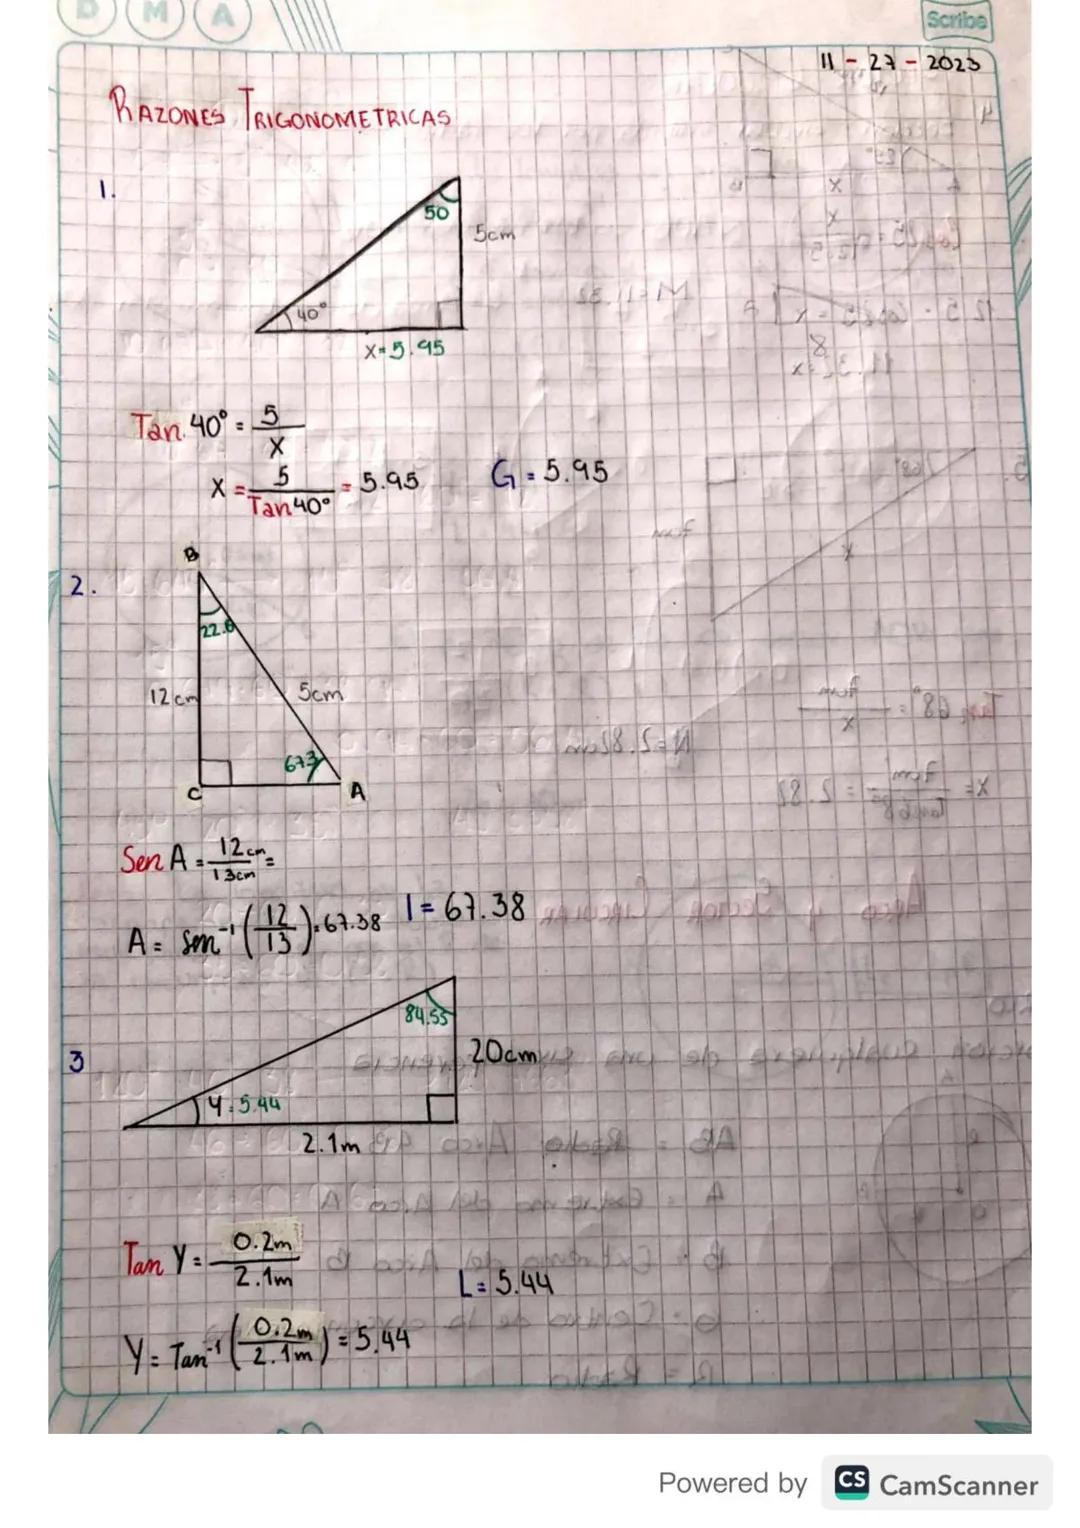 D M A
Scribe
11 - 27 - 2023
RAZONES TRIGONOMETRICAS
1.
50
5cm
40°
X=5.95
Tan 40° = 5/X
X = 5/Tan40° = 5.95
G = 5.95
2.
B
22.6
12 cm
5cm
C
A
Sen A = 12cm/13cm =
A = sen⁻¹(12/13)=67.38
I = 67.38
3
84.55
20cm
Y=5.44
2.1m
Tan Y = 0.2m/2.1m
L = 5.44
Y = Tan⁻¹(0.2m/2.1m) = 5.44
Powered by CS CamScanner